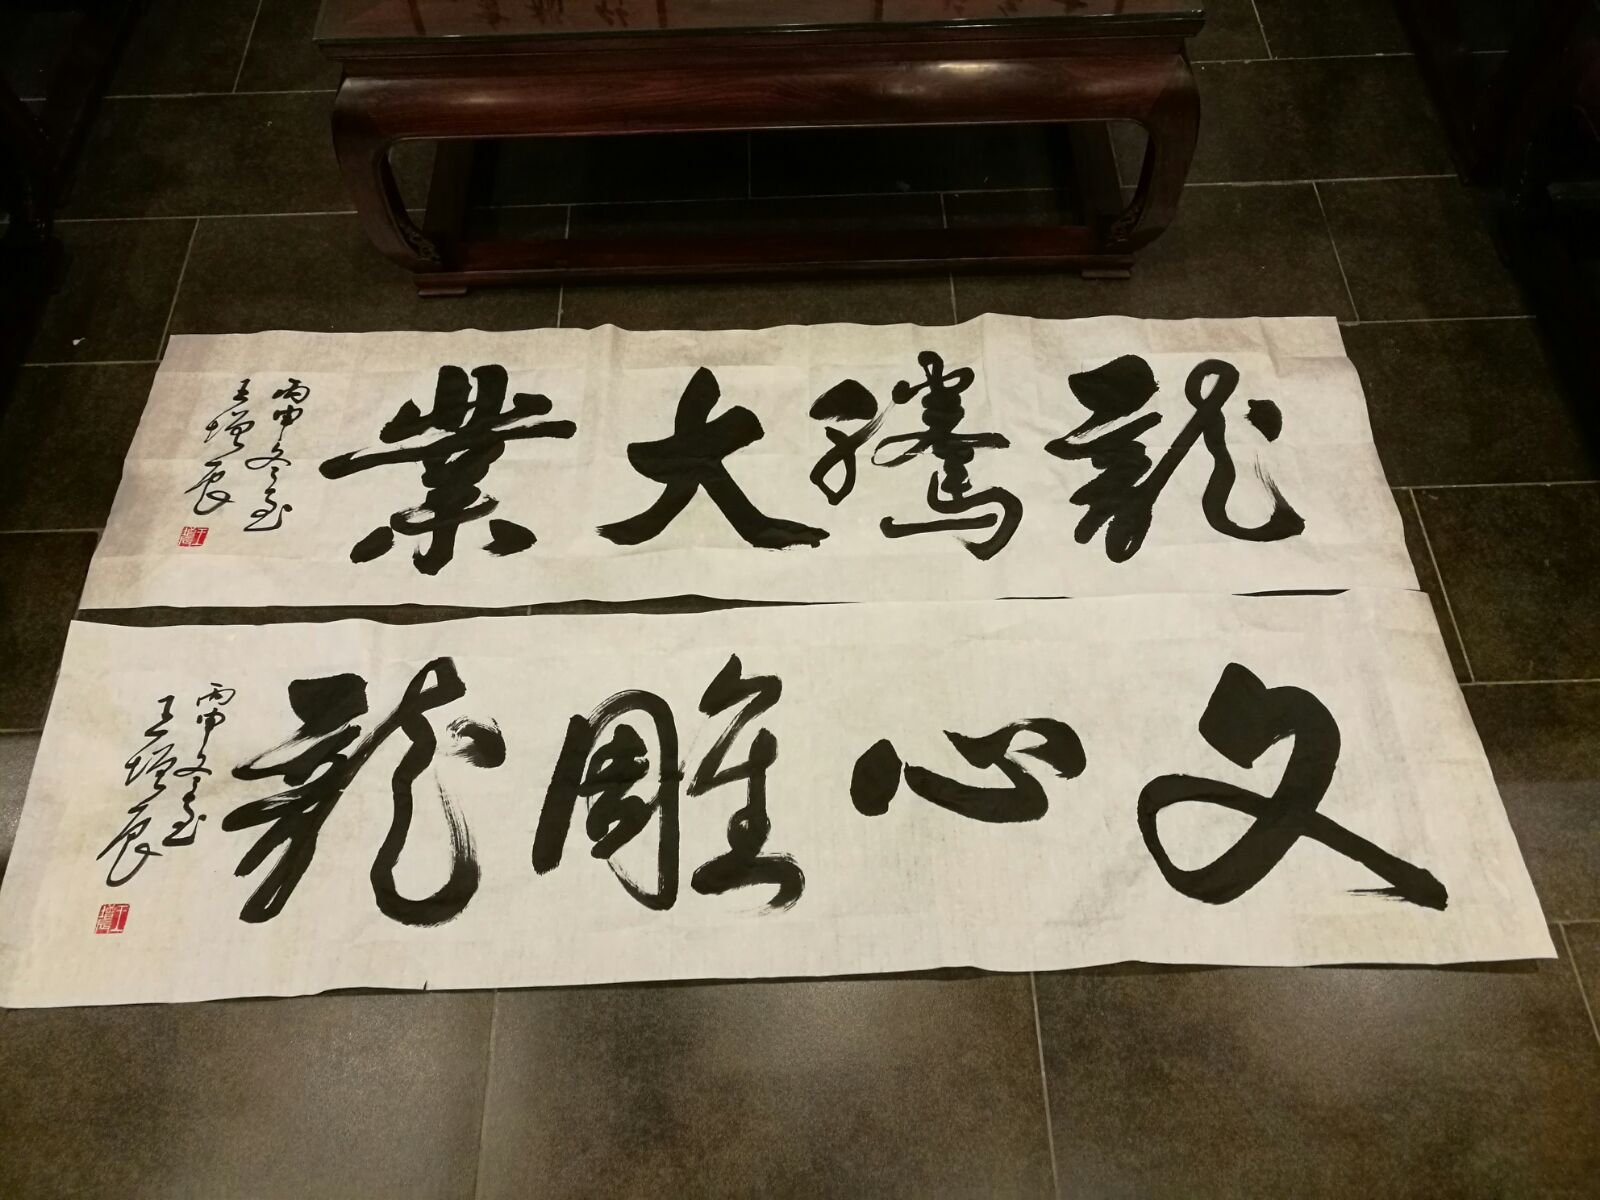 龍騰大業
丙申冬至
王增辰
文心雕龍
丙申冬至
王增辰